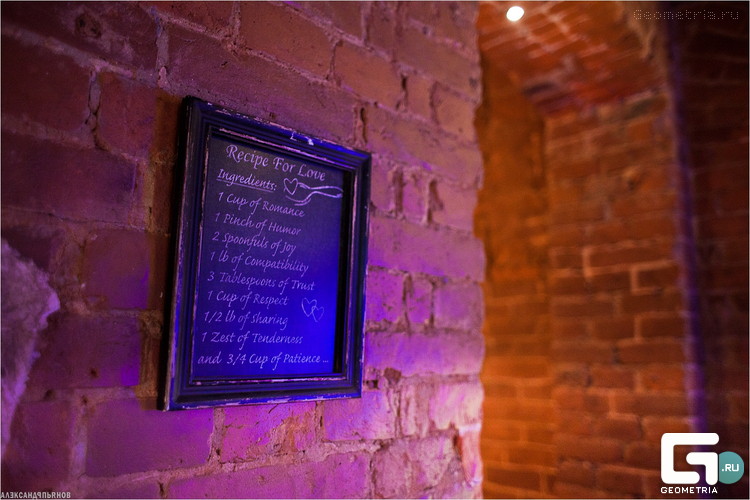 Geometria.ru
Recipe For Love
Ingredients:
1 Cup of Romance
1 Pinch of Humor
2 Spoonfuls of Joy
1 lb of Compatibility
3 Tablespoons of Trust
1 Cup of Respect
1/2 lb of Sharing
1 Zest of Tenderness
and 3/4 Cup of Patience ...
G
.RU
GEOMETRIA